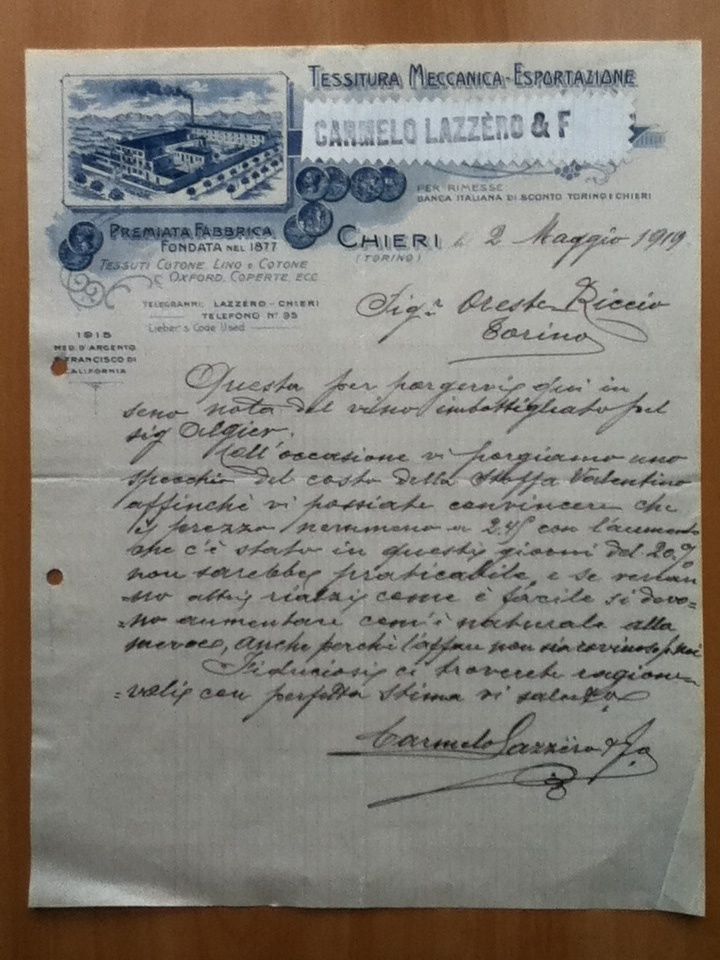 TESSITURA MECCANICA - ESPORTAZIONE
CARMELO LAZZÈRO & F
PER RIMESSE
BANCA ITALIANA DI SCONTO TORINO E CHIERI
PREMIATA FABBRICA
FONDATA NEL 1877
TESSUTI COTONE, LINO E COTONE
OXFORD, COPERTE, ECC.
CHIERI
(TORINO)
2 Maggio 1919
TELEGRAMMI: LAZZÈRO - CHIERI
TELEFONO N° 95
Lieber's Code Used
1915
MED. D'ARGENTO
S. FRANCISCO DI
CALIFORNIA
Sig.r Oreste Riccio
Torino
Questa per porgervi qui in
seno nota del vino imbottigliato pel
sig Algier.
Nell'occasione vi porgiamo uno
specchio del costo della stoffa Valentino
affinchè vi possiate convincere che
il prezzo nemmeno a 2.45 con l'aumento
che c'è stato in questi giorni del 20%
non sarebbe praticabile, e se
no altri rialzi come è facile si devo=
=no aumentare com'è naturale alla
merce, anche perchè l'affare non sia rovinoso p. noi
Fiduciosi ci troverete ragione=
=voli con perfetta stima vi
Carmelo Lazzèro & Fo